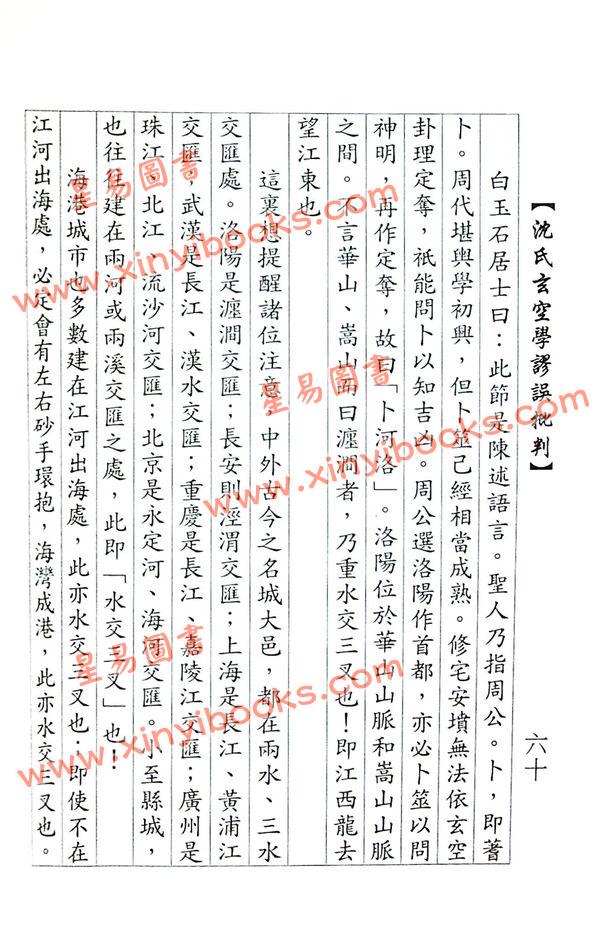 【沈氏玄空學謬誤批判】
六十
白玉石居士曰：此節是陳述語言。聖人乃指周公。卜，即蓍
卜。周代堪輿學初興，但卜筮已經相當成熟。修宅安墳無法依玄空
卦理定奪，祇能問卜以知吉凶。周公選洛陽作首都，亦必卜筮以問
神明，再作定奪，故曰「卜河洛」。洛陽位於華山山脈和嵩山山脈
之間。不言華山、嵩山而曰瀍澗者，乃重水交三叉也！即江西龍去
望江東也。
這裏想提醒諸位注意，中外古今之名城大邑，都在兩水、三水
交匯處。洛陽是瀍澗交匯；長安則涇渭交匯；上海是長江、黃浦江
交匯，武漢是長江、漢水交匯；重慶是長江、嘉陵江交匯；廣州是
珠江、北江、流沙河交匯；北京是永定河、海河交匯。小至縣城，
也往往建在兩河或兩溪交匯之處，此即「水交三叉」也！
海港城市也多數建在江河出海處，此亦水交三叉也；即使不在
江河出海處，必定會有左右砂手環抱，海灣成港，此亦水交三叉也。
星易圖書
www.xinyibooks.com
星易圖書
www.xinyibooks.com
星易圖書
www.xinyibooks.com